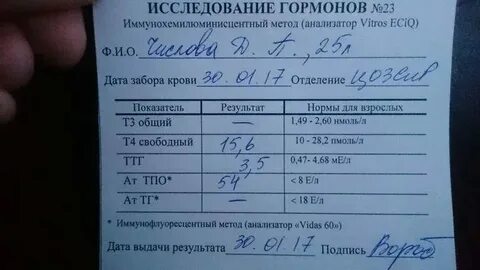 ИССЛЕДОВАНИЕ ГОРМОНОВ №23
Иммунохемилюминисцентный метод (анализатор Vitros ECiQ)
Ф.И.О. Числова Д. П., 25л
Дата забора крови 30.01.17 Отделение ЦОЗСиР
Показатель Результат Нормы для взрослых
Т3 общий — 1,49 - 2,60 нмоль/л
Т4 свободный 15,6 10 - 28,2 пмоль/л
ТТГ 3,5 0,47- 4,68 мЕ/л
Ат ТПО* 54 < 8 Е/л
Ат ТГ* — < 18 Е/л
* Иммунофлуоресцентный метод (анализатор «Vidas 60»)
Дата выдачи результата 30.01.17 Подпись